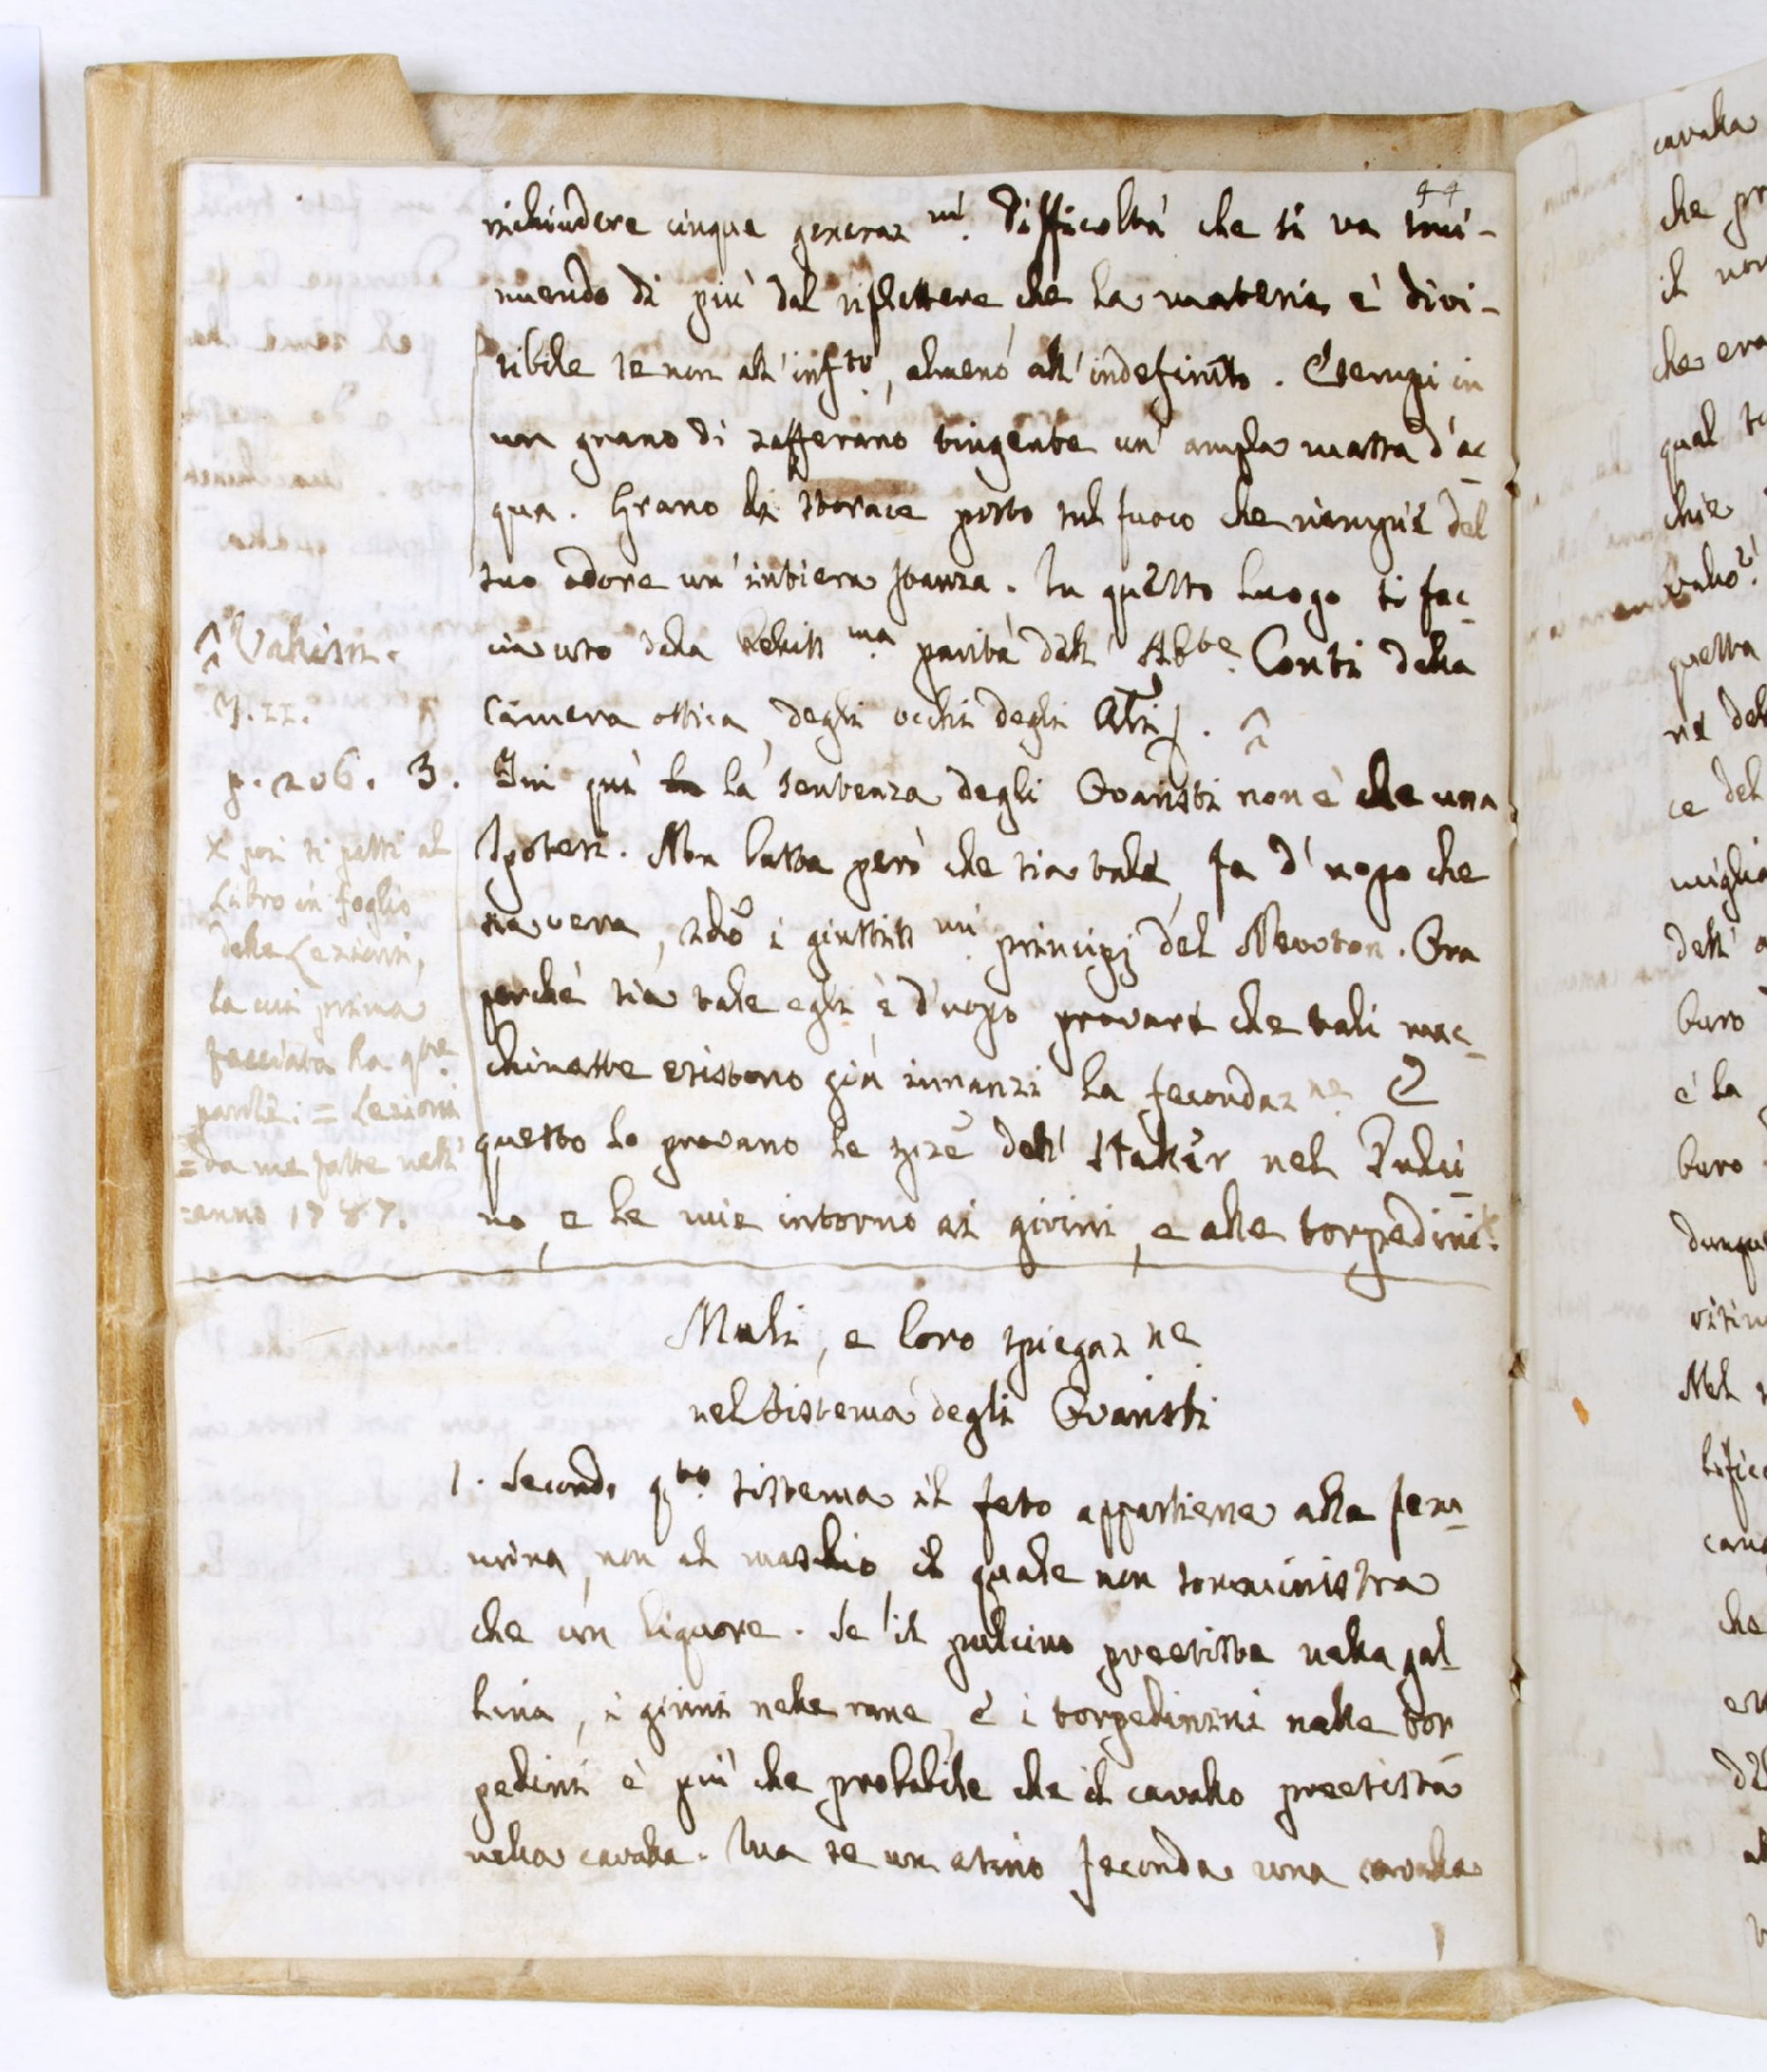 44
richiudere cinque generaz.ni Difficoltà che si va smi-
nuendo di più dal riflettere che la materia è divi-
sibile se non all'inf.to, almeno all'indefinito. Esempi in
un grano di zafferano tingente un'ampla massa d'ac-
qua. Grano di storace posto sul fuoco che riempie del
suo odore un'intiera stanza. In questo luogo si fac-
cia uso della belliss.ma parità dell'Ab.te Conti della
Camera ottica, degli occhi degli
Vallisn.
p. 206.
3. Fin qui la sentenza degli Ovaristi non è che una
Ipotesi. Non basta però che sia tale, fa d'uopo che
sia vera, sdo i giustiss.mi principj del Newton. Ora
perchè sia tale egli è d'uopo provare che tali mac-
chinette esistono già innanzi la fecondaz.ne E
questo lo provano le spze dell'Haller nel Pulci-
no, e le mie intorno ai girini, e alle torpedini. x
x poi si passi al
Libro in foglio
delle Lezioni,
la cui prima
facciata ha q.te
parole: = Lezioni
= da me fatte nell'
= anno 1787.
Muli, e loro spiegaz.ne
nel Sistema degli Ovaristi
1. Secondo q.to sistema il feto appartiene alla fem-
mina, non al maschio, il quale non somministra
che un liquore. Se il pulcino preesiste nella gal-
lina, i girini nelle rane, e i torpedinini nelle tor
pedini è più che probabile che il cavallo preesista
nella cavalla. Ma se un asino feconda una cavalla
cavalla
che
il
che era
qual
chie
vallo?
questa
ne del
ce del
miglia
dell'
buro
è la
buro
dunque
Nel
che